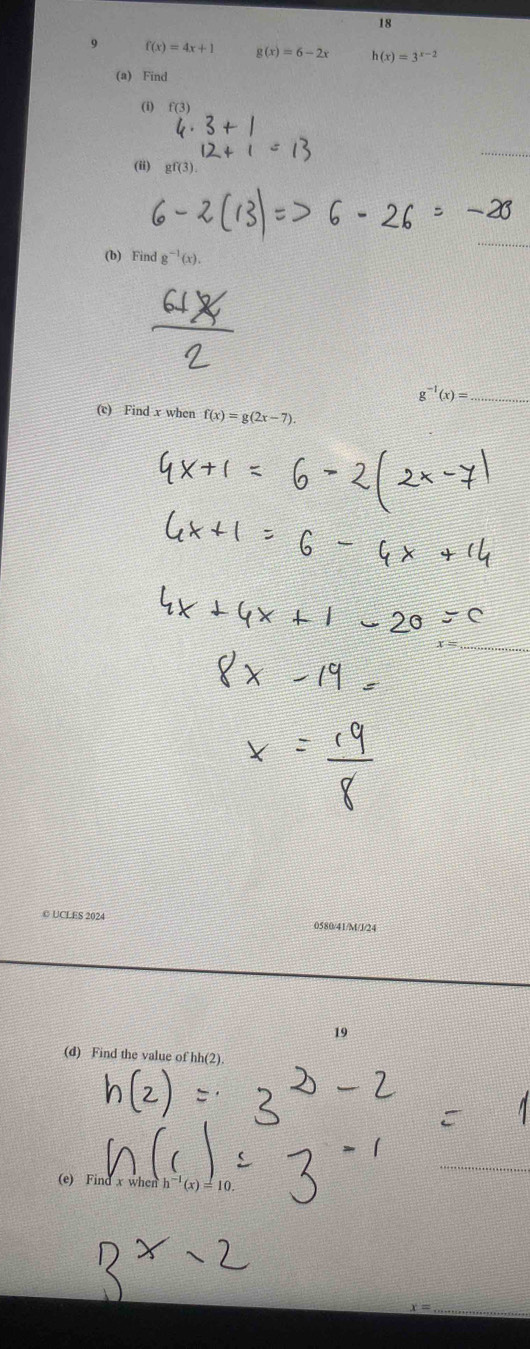 18
9 f(x) = 4x + 1 g(x) = 6 − 2x h(x) = 3^{x−2}
(a) Find
(i) f(3)
4 · 3 + 1
12 + 1 = 13
(ii) gf(3).
6 - 2(13) => 6 - 26 = -20
(b) Find g⁻¹(x).
6+
2
g⁻¹(x) = ....................
(c) Find x when f(x) = g(2x − 7).
4x+1 = 6 - 2(2x-7)
4x+1 = 6 - 4x + 14
4x + 4x + 1 - 20 = 0
x = ....................
8x - 19 =
x = 19/8
© UCLES 2024
0580/41/M/J/24
19
(d) Find the value of hh(2).
h(2) = 3^{2-2} = 1
h(1) = 3^{-1}
(e) Find x when h⁻¹(x) = 10.
3^{x-2}
x = ....................